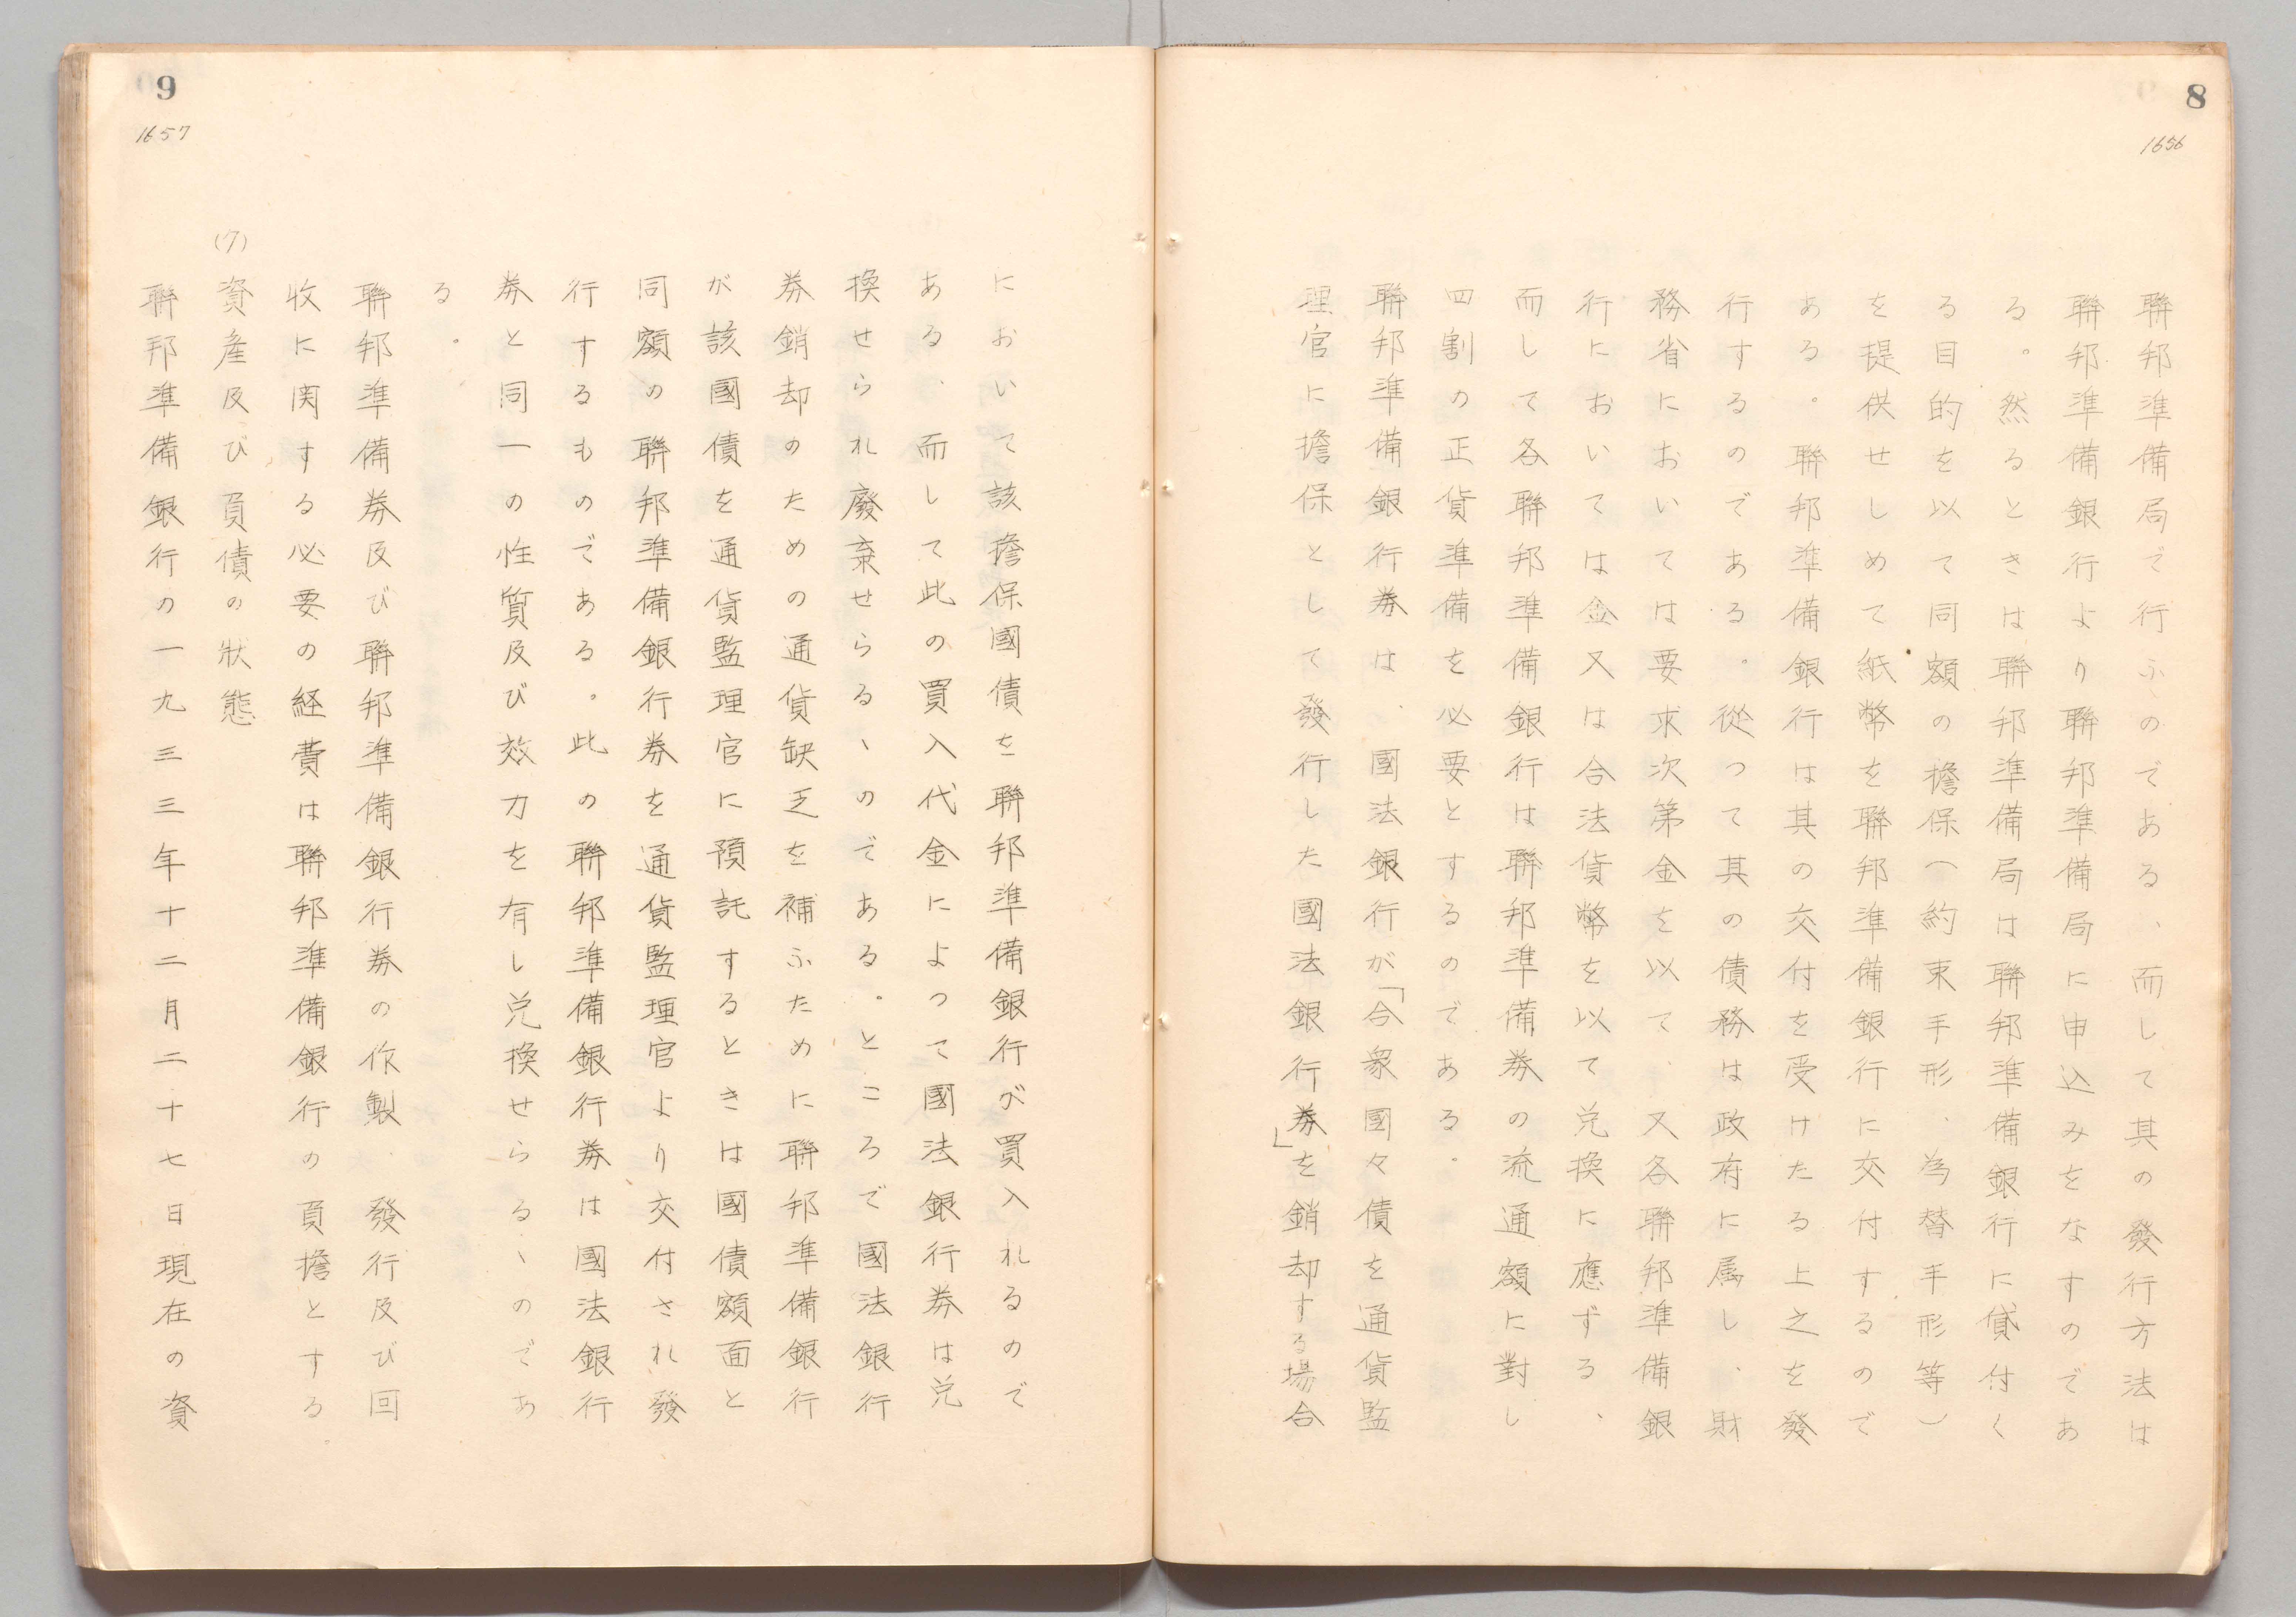 8
1656
聯邦準備局で行ふのである、而して其の發行方法は
聯邦準備銀行より聯邦準備局に申込みをなすのであ
る。然るときは聯邦準備局は聯邦準備銀行に貸付く
る目的を以て同額の擔保(約束手形、為替手形等)
を提供せしめて紙幣を聯邦準備銀行に交付するので
ある。聯邦準備銀行は其の交付を受けたる上之を發
行するのである。從つて其の債務は政府に属し、財
務省においては要求次第金を以て、又各聯邦準備銀
行においては金又は合法貨幣を以て兌換に應ずる、
而して各聯邦準備銀行は聯邦準備券の流通額に對し
四割の正貨準備を必要とするのである。
聯邦準備銀行券は、國法銀行が「合衆國々債を通貨監
理官に擔保として發行した國法銀行券」を銷却する場合
9
1657
において該擔保國債を聯邦準備銀行が買入れるので
ある、而して此の買入代金によつて國法銀行券は兌
換せられ廢棄せらるゝのである。ところで國法銀行
券銷却のための通貨缺乏を補ふために聯邦準備銀行
が該國債を通貨監理官に預託するときは國債額面と
同額の聯邦準備銀行券を通貨監理官より交付され發
行するものである。此の聯邦準備銀行券は國法銀行
券と同一の性質及び效力を有し兌換せらるゝのであ
る。
聯邦準備券及び聯邦準備銀行券の作製、發行及び回
收に関する必要の経費は聯邦準備銀行の負擔とする。
(7) 資産及び負債の狀態
聯邦準備銀行の一九三三年十二月二十七日現在の資